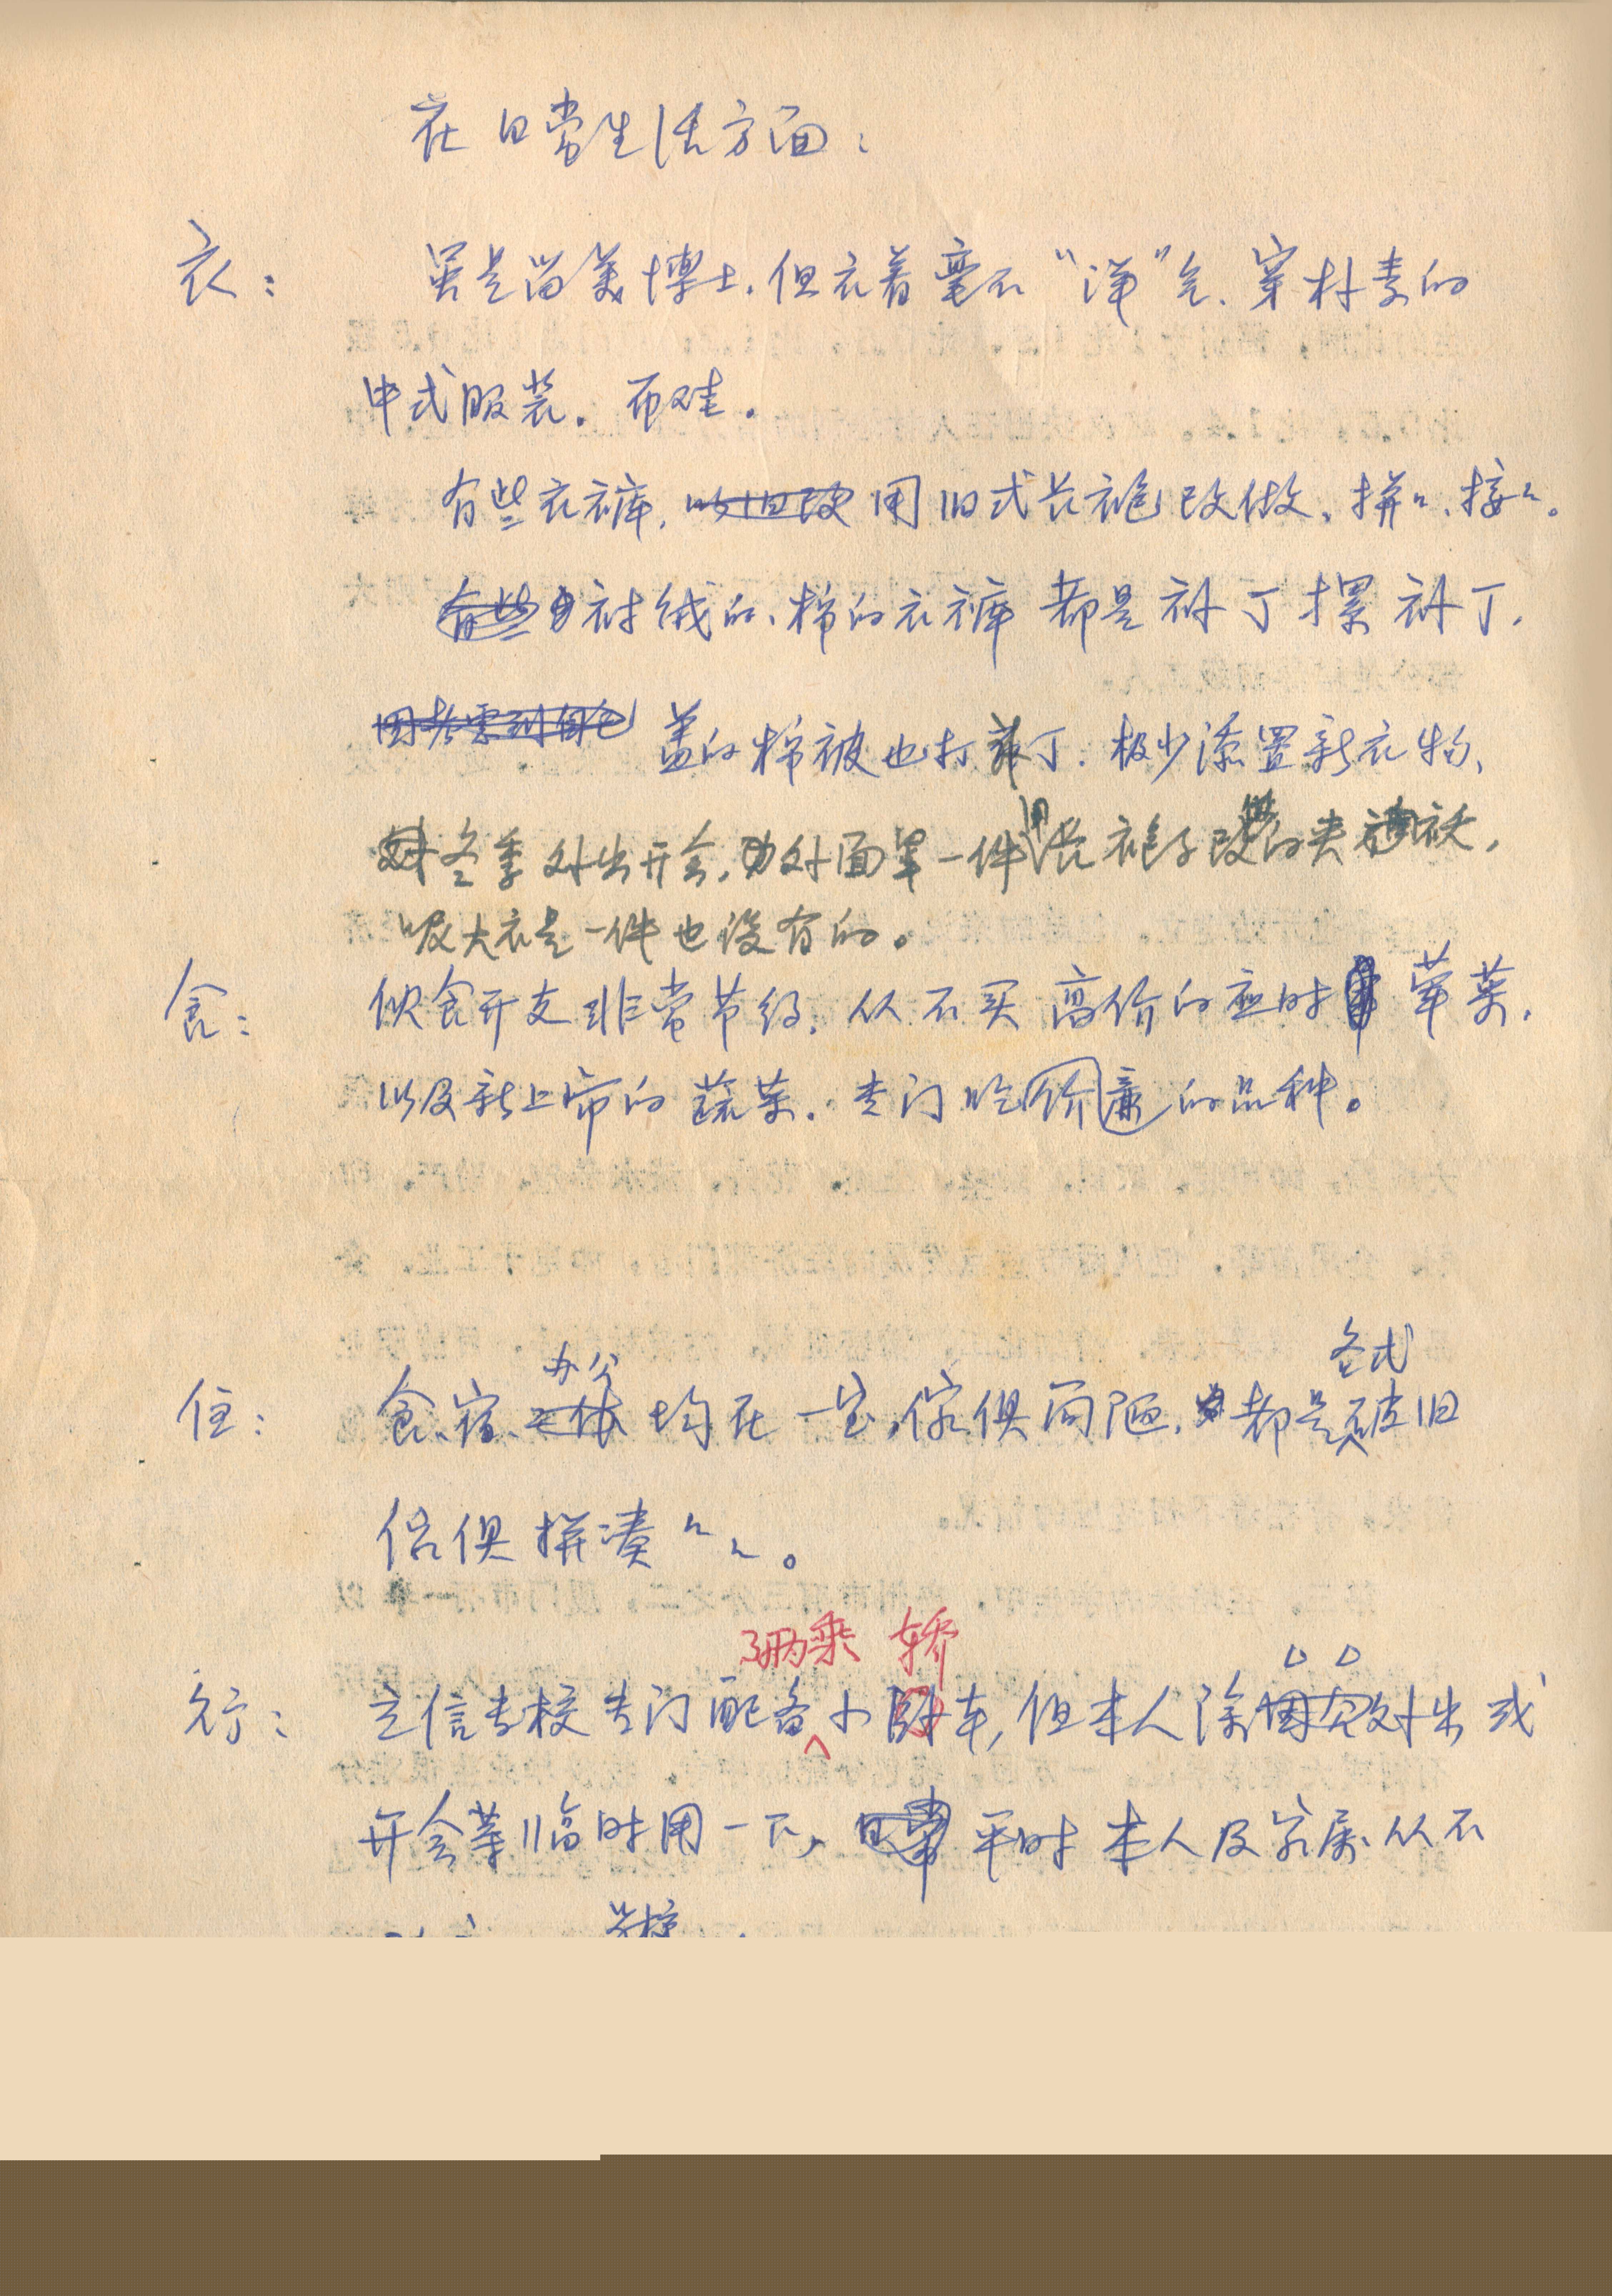 在日常生活方面：
衣： 虽是留美博士，但衣着毫不“洋”气、穿朴素的
中式服装。布鞋。
有些衣裤，用旧式长袍改做、拼拼、接接。
衬绒的、棉的衣裤都是补丁摞补丁，
盖的棉被也打补丁．极少添置新衣物、
冬季外出开会，外面罩一件旧长袍子改做的夹袄，
呢大衣是一件也没有的。
食： 饮食开支非常节约．从不买高价的应时荤菜，
以及新上市的蔬菜．专门吃价廉的品种。
办公 各式
住： 食、宿、均在一室，傢俱简陋，都是破旧
傢俱拼凑拼凑。
两乘 轿
行： 立信专校专门配备小车，但本人除因公外出或
开会等临时用一下，平时本人及家属从不